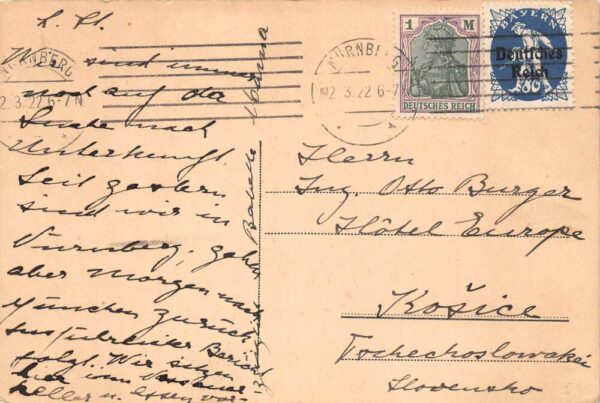 L. O.
Wir sind immer
noch auf da
Suche nach
Unterkunft.
Seit gestern
sind wir in
Nürnberg, gehen
aber morgen nach
München zurück.
Ausführlicher Bericht
folgt. Wir sitzen
hier im Nassauer
keller u. essen vor-
Babette
NÜRNBERG
2.3.22 6-7 N
NÜRNBERG
2.3.22 6-7
1 M
DEUTSCHES REICH
BAYERN
Deutsches
Reich
80
Herrn
Ing. Otto Burger
Hôtel Europe
Košice
Tschechoslowakei
Slovensko